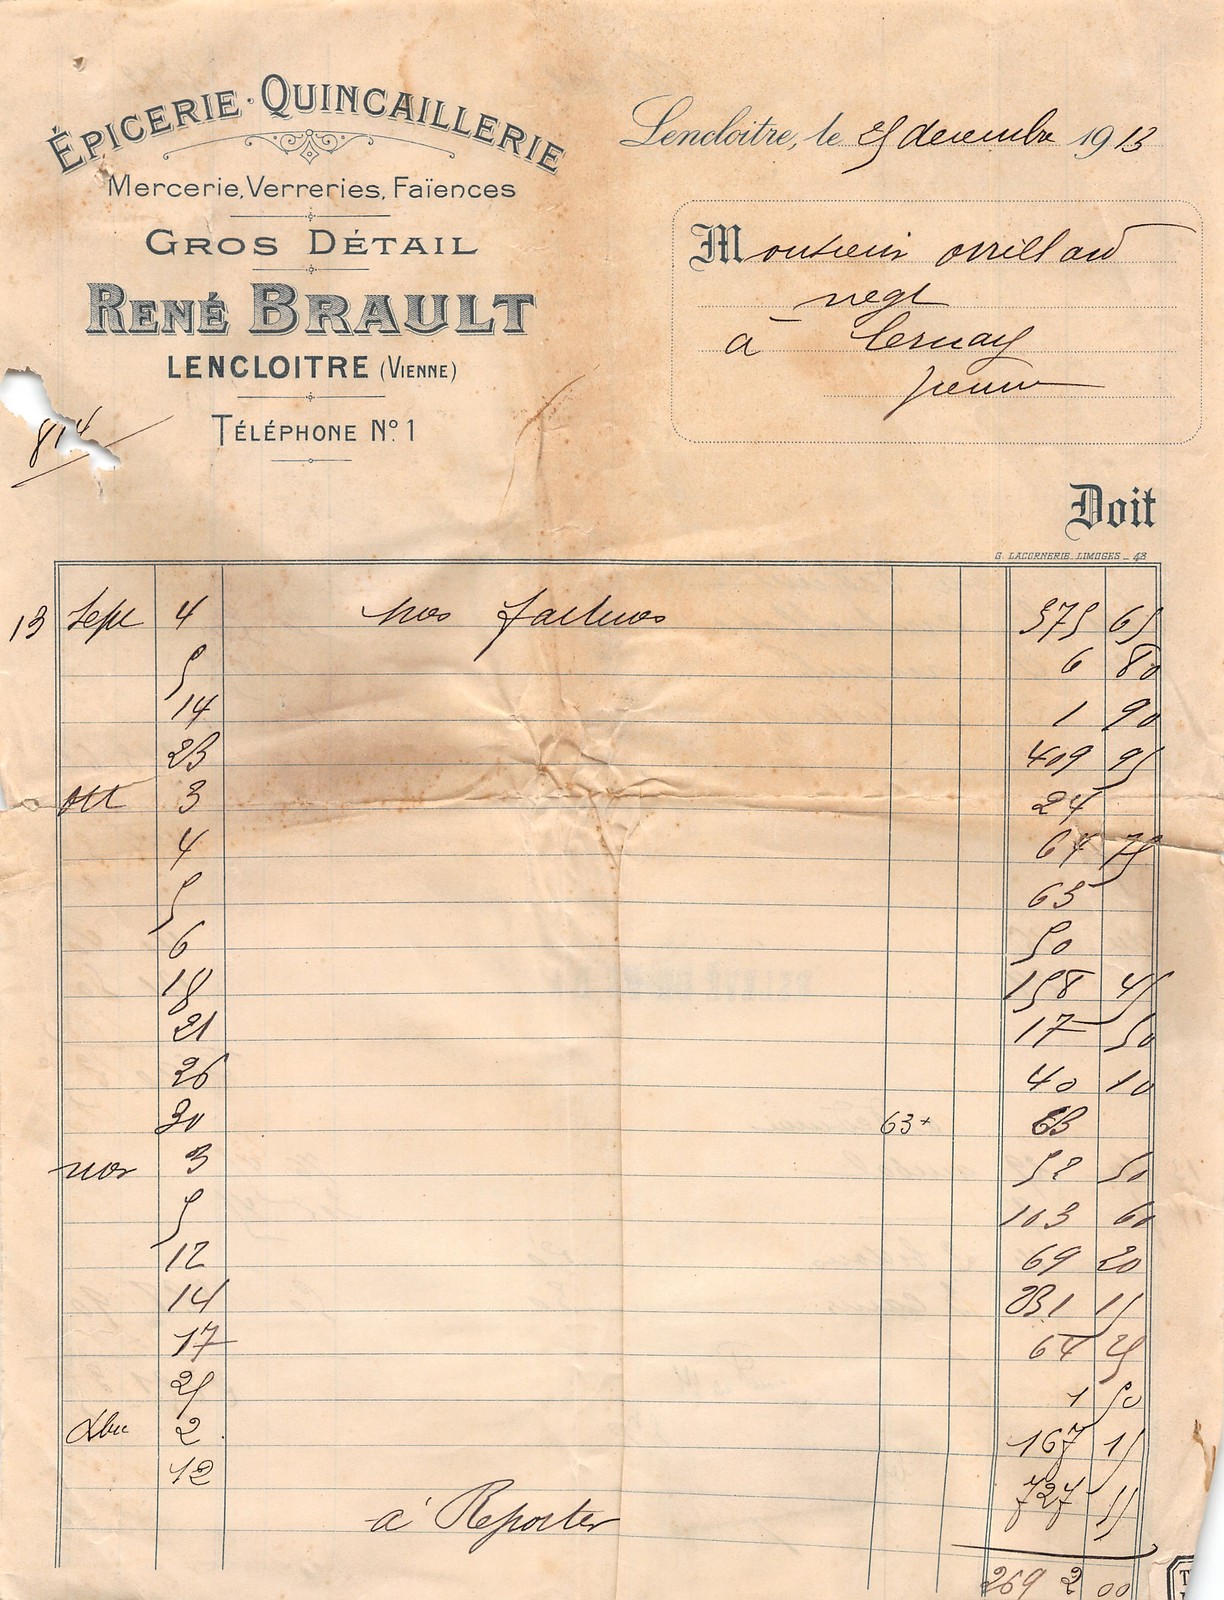 ÉPICERIE · QUINCAILLERIE
Mercerie, Verreries, Faïences
GROS DÉTAIL
RENÉ BRAULT
LENCLOITRE (VIENNE)
TÉLÉPHONE Nº 1
814
Lencloitre, le 25 decembre 1913
Monsieur
negt
à Cernay
Vienne
Doit
G. LACORNERIE. LIMOGES _ 43
13 Sept 4 Nos factures 375 65
5 6 80
14 1 90
23 409 95
Oct 3 24
4 64 75
5 63
6 50
18 158 45
21 17 50
26 40 10
30 63+ 63
nov 3 52 50
5 103 60
12 69 20
14 231 15
17 64 25
25 1 50
Xbre 2 167 15
12 727 55
à Reporter
269 2 00